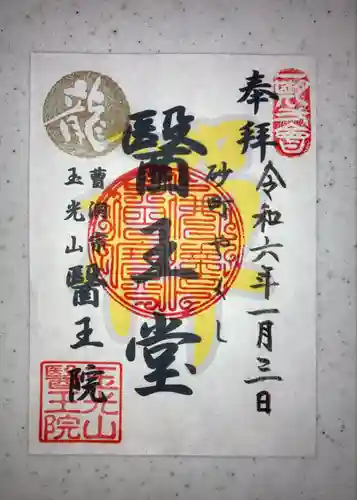 奉拝
令和六年一月三日
砂町やくし
醫王堂
龍
曹洞宗
玉光山
醫王院
玉光山
醫王院